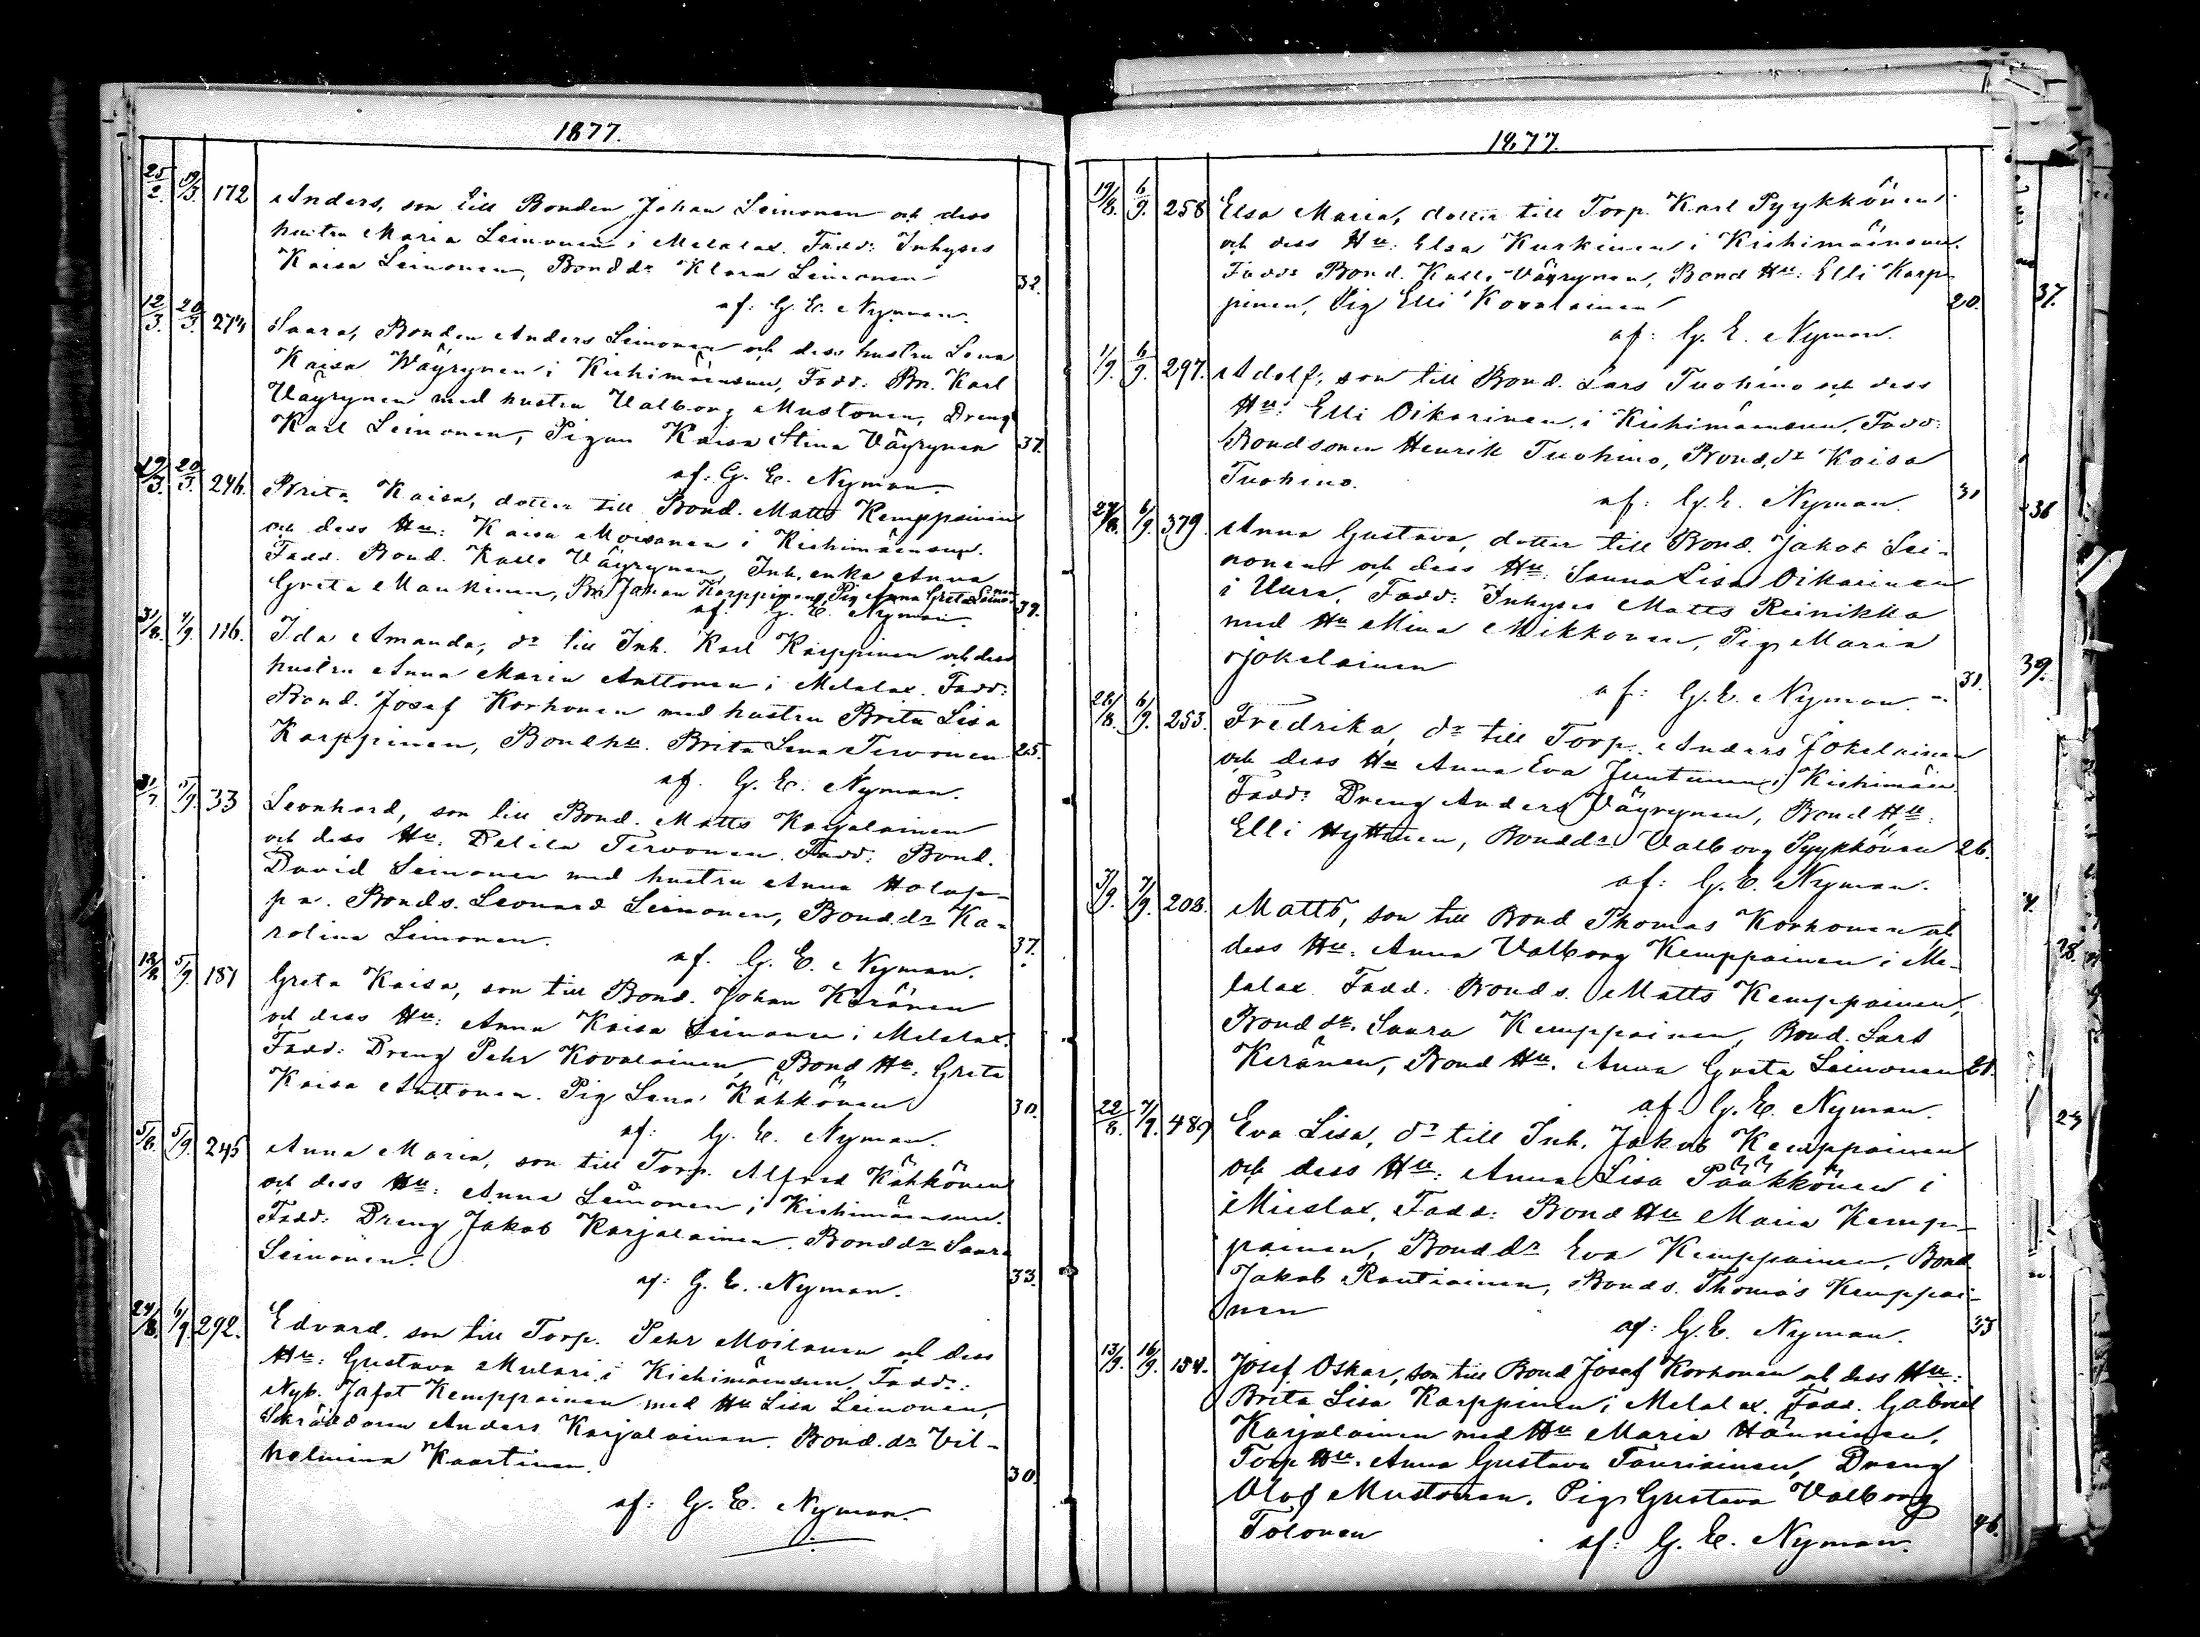 1877.
25/2. 19/3. 172 Anders, son till Bonden Johan Leinonen och dess
hustru Maria Leinonen i Melalax. Fadd: Inhyses
Kaisa Leinonen, Bonddr Klara Leinonen 32.
af: G. E. Nyman.
12/3. 20/3. 273 Saara, Bonden Anders Leinonen och dess hustru Lena
Kaisa Wäyrynen i Kiehimäensuu, Fadd: Bn. Karl
Väyrynen med hustru Valborg Mustonen, Dreng
Karl Leinonen, Pigan Kaisa Stina Väyrynen 37.
af: G. E. Nyman.
19/3. 20/3. 246. Brita Kaisa, dotter till Bond. Matts Kemppainen
och dess Hu: Kaisa Moisanen i Kiehimäensuu.
Fadd. Bond. Kalle Väyrynen, Inh. enka Anna
Greta Mankinen, Bn. Johan Karppinen, Pig Anna Greta Leinonen 39.
af. G. E. Nyman.
31/8. 4/9. 116. Ida Amanda, dr till Inh. Karl Karppinen och dess
hustru Anna Maria Anttonen i Melalax. Fadd:
Bond. Josef Korhonen med hustru Brita Lisa
Karppinen, Bondhu. Brita Lena Tervonen 25.
af. G. E. Nyman.
31/7. 5/9. 33 Leonhard, son till Bond. Matts Karjalainen
och dess Hu: Delila Tervonen. Fadd: Bond.
David Leinonen med hustru Anna Holap-
pa. Bonds. Leonard Leinonen, Bond.dr Ka-
rolina Leinonen. 37.
af. G. E. Nyman.
12/8 5/9. 181 Greta Kaisa, son till Bond. Johan Keränen
och dess Hu: Anna Kaisa Leinonen i Melalax.
Fadd: Dreng Pehr Kovalainen, Bond Hu. Greta
Kaisa Anttonen. Pig Lena Kähkönen 30.
af: G. E. Nyman.
5/8. 5/9. 245 Anna Maria, son till Torp. Alfred Kähkönen
och dess Hu: Anna Leinonen i Kiehimäensuu.
Fadd: Dreng Jakob Karjalainen. Bonddr Saara
Leinonen. 33.
af: G. E. Nyman.
24/8. 6/9. 292. Edvard. son till Torp. Pehr Moilanen och dess
Hu: Gustava Mulari i Kiehimäensuu. Fadd:
Nyb. Jafet Kemppainen med Hu Lisa Leinonen,
Skräddaren Anders Karjalainen. Bond.dr Vil-
helmina Kaartinen. 30.
af: G. E. Nyman.
1877.
19/8. 6/9. 258 Elsa Maria, dotter till Torp. Karl Pyykkönen
och dess Hu: Elsa Kurkinen i Kiehimäensuu.
Fadd: Bond. Kalle Väyrynen, Bond Hu: Elli Karp-
pinen, Pig Elli Kovalainen 20.
af: G. E. Nyman.
1/9. 6/9. 297. Adolf, son till Bond. Lars Tuohino och dess
Hu: Elli Oikarinen i Kiehimäensuu. Fadd:
Bondsonen Henrik Tuohino, Bond.dr Kaisa
Tuohino. 31
af: G. E. Nyman.
27/8. 6/9. 379. Anna Gustava, dotter till Bond. Jakob Lei-
nonen och dess Hu: Sanna Lisa Oikarinen
i Uura. Fadd: Inhyses Matts Reinikka
med Hu Mina Mikkonen, Pig Maria
Jokelainen 31.
af: G. E. Nyman.
22/8. 6/9. 253. Fredrika, dr till Torp. Anders Jokelainen
och dess Hu Anna Eva Juntunen i Kiehimäen.
Fadd: Dreng Anders Väyrynen, Bond Hu:
Elli Hyttinen, Bonddr Valborg Pyykkönen 26.
af: G. E. Nyman.
3/9. 7/9. 203. Matts, son till Bond Thomas Korhonen och
dess Hu: Anna Valborg Kemppainen i Me-
lalax. Fadd: Bonds. Matts Kemppainen,
Bond dr. Saara Kemppainen, Bond. Lars
Keränen, Bond Hu. Anna Greta Leinonen 21.
af: G. E. Nyman.
22/8. 7/9. 489 Eva Lisa, dr till Inh. Jakob Kemppainen
och dess Hu: Anna Lisa Pääkkönen i
Mieslax. Fadd: Bond Hu Maria Kemp-
painen, Bonddr Eva Kemppainen, Bond
Jakob Rautiainen, Bonds. Thomas Kemppai-
nen 33
af: G. E. Nyman.
13/9. 16/9. 154. Josef Oskar, son till Bond Josef Korhonen och dess Hu:
Brita Lisa Karppinen i Melalax. Fadd. Gabriel
Karjalainen med Hu Maria Hänninen.
Torp Hu. Anna Gustava Tauriainen, Dreng
Olof Mustonen. Pig Gustava Valborg
Tolonen 46.
af: G. E. Nyman.
37.
38
39.
28.
23